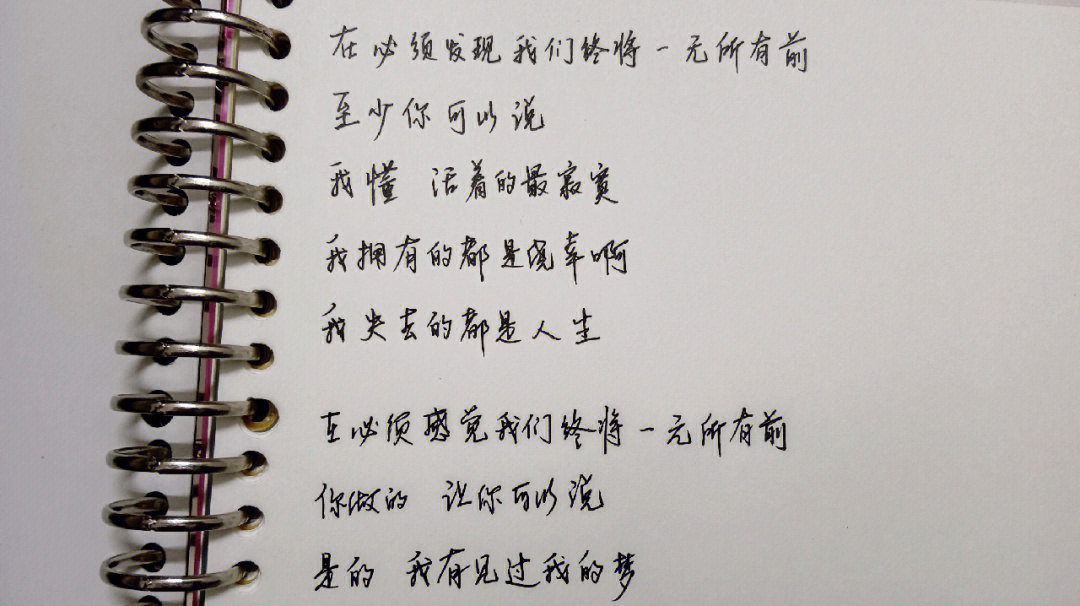 在必须发现我们终将一无所有前
至少你可以说
我懂 活着的最寂寞
我拥有的都是侥幸啊
我失去的都是人生
在必须感觉我们终将一无所有前
你做的 让你可以说
是的 我有见过我的梦